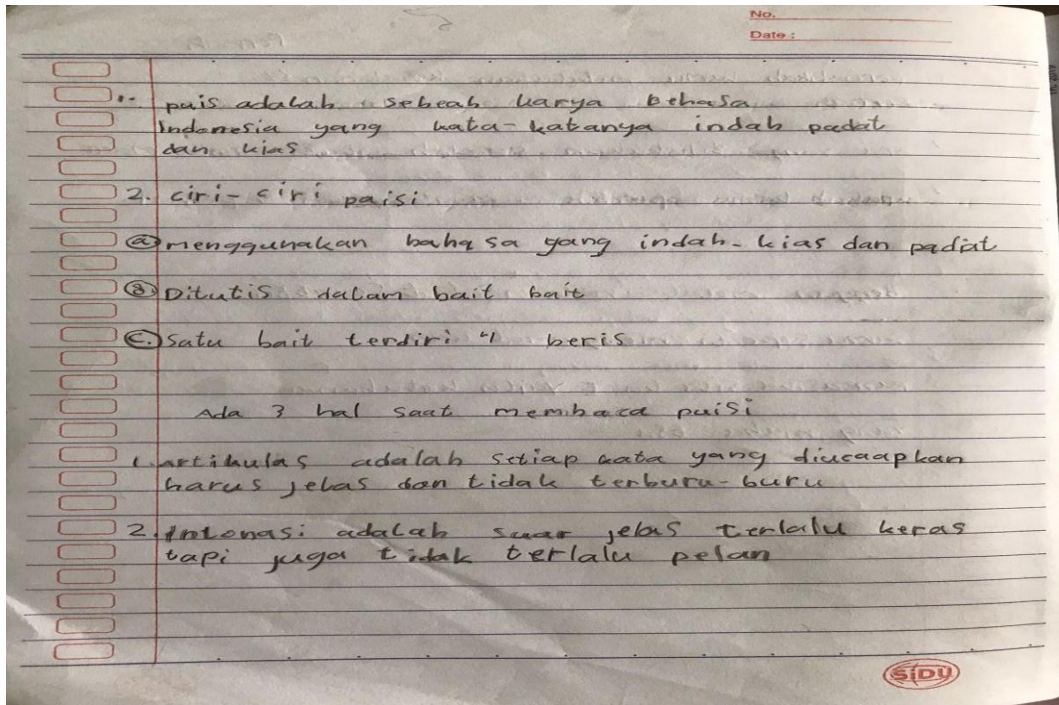 No.
Date :
1.- puis adalah sebeah karya behasa
Indonesia yang kata-katanya indah padat
dan kias
2. ciri-ciri paisi
a menggunakan bahasa yang indah-kias dan padat
B. Ditutis dalam bait bait
C. Satu bait terdiri 4 beris
Ada 3 hal saat membaca puisi
1. artikulas adalah setiap kata yang diucaapkan
harus jelas dan tidak terburu-buru
2. Intonasi adalah suar jelas terlalu keras
tapi juga tidak terlalu pelan
SiDU